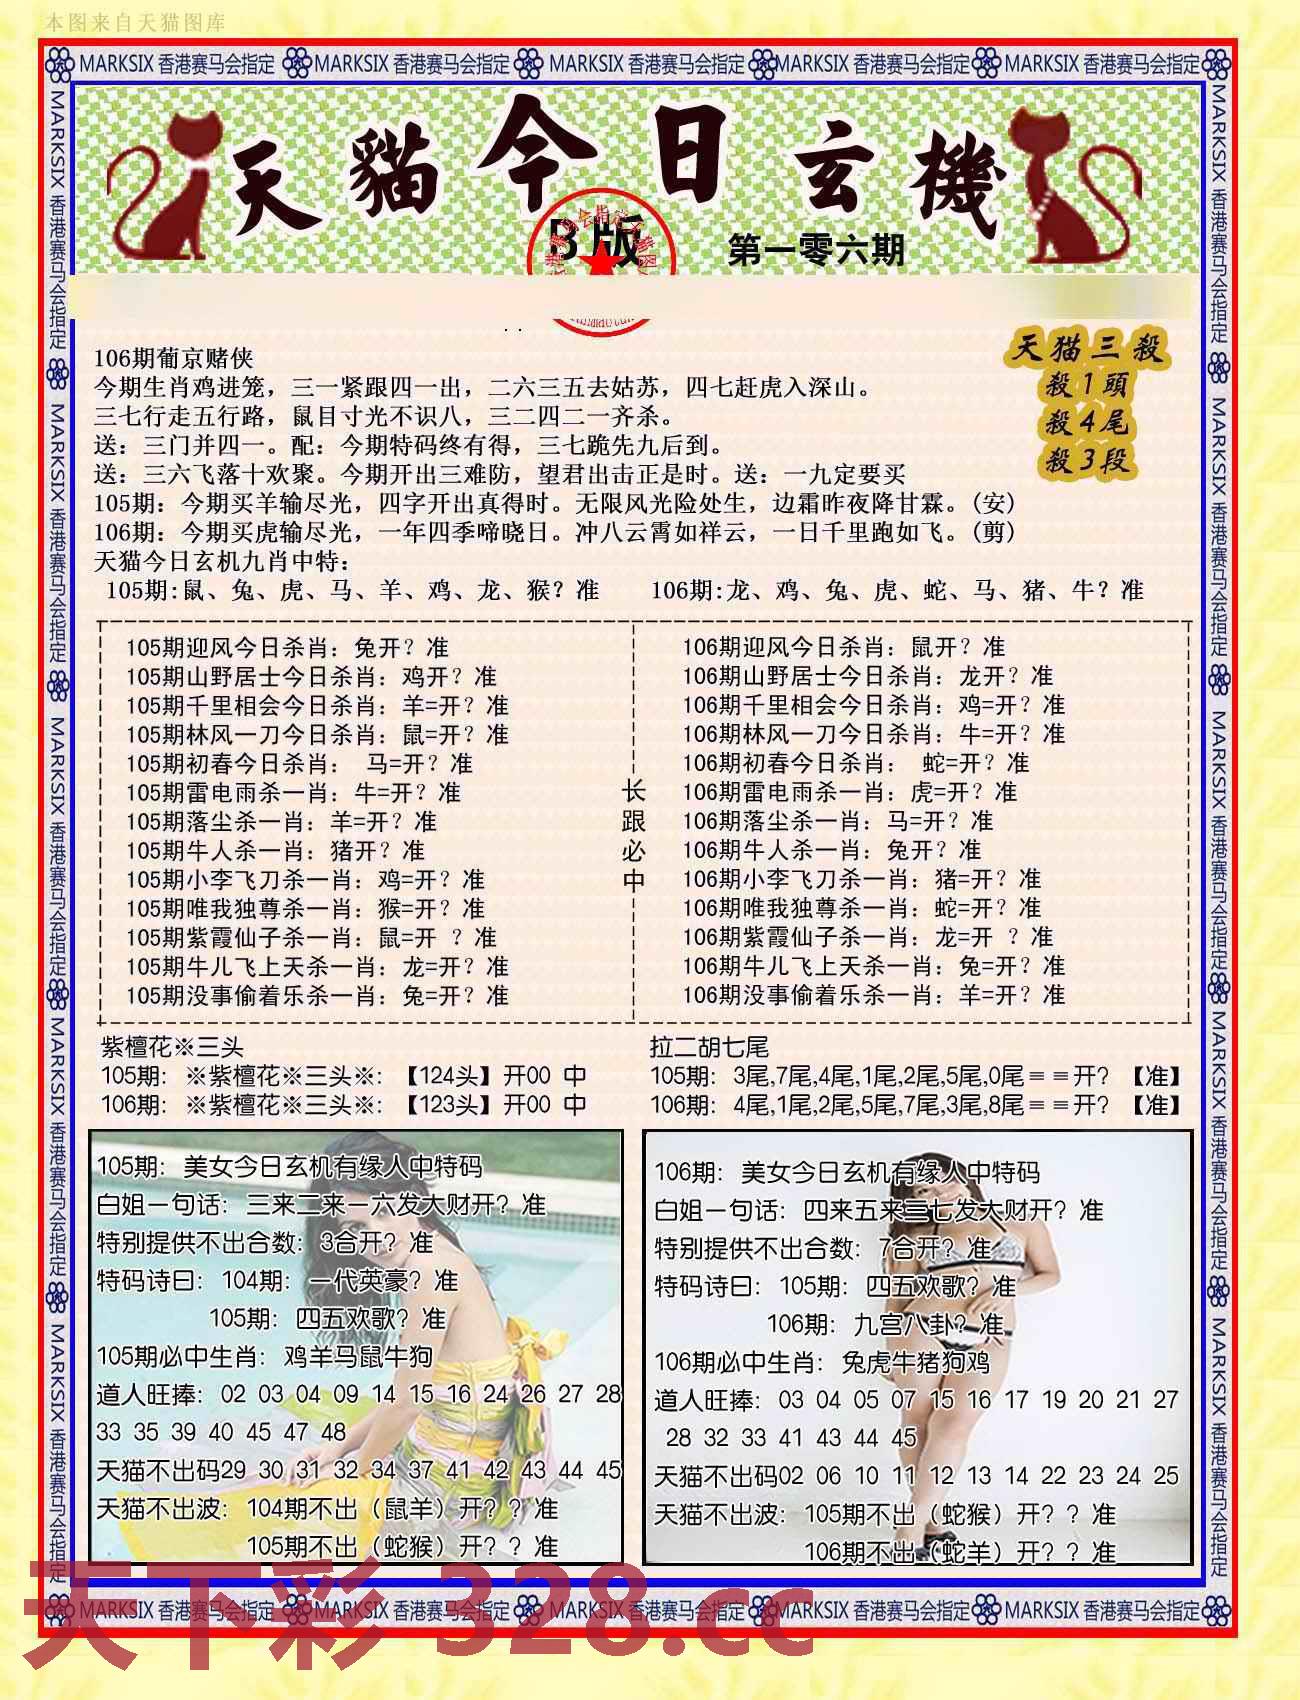 本图来自天猫图库
MARKSIX 香港赛马会指定 MARKSIX 香港赛马会指定 MARKSIX 香港赛马会指定 MARKSIX 香港赛马会指定 MARKSIX 香港赛马会指定
天貓今日玄機
B版
第一零六期
天猫三殺
殺1頭
殺4尾
殺3段
106期葡京赌侠
今期生肖鸡进笼，三一紧跟四一出，二六三五去姑苏，四七赶虎入深山。
三七行走五行路，鼠目寸光不识八，三二四二一齐杀。
送：三门并四一。配：今期特码终有得，三七跪先九后到。
送：三六飞落十欢聚。今期开出三难防，望君出击正是时。送：一九定要买
105期：今期买羊输尽光，四字开出真得时。无限风光险处生，边霜昨夜降甘霖。(安)
106期：今期买虎输尽光，一年四季啼晓日。冲八云霄如祥云，一日千里跑如飞。(剪)
天猫今日玄机九肖中特：
105期:鼠、兔、虎、马、羊、鸡、龙、猴？准 106期:龙、鸡、兔、虎、蛇、马、猪、牛？准
105期迎风今日杀肖：兔开？准
105期山野居士今日杀肖：鸡开？准
105期千里相会今日杀肖：羊=开？准
105期林风一刀今日杀肖：鼠=开？准
105期初春今日杀肖： 马=开？准
105期雷电雨杀一肖：牛=开？准
105期落尘杀一肖：羊=开？准
105期牛人杀一肖：猪开？准
105期小李飞刀杀一肖：鸡=开？准
105期唯我独尊杀一肖：猴=开？准
105期紫霞仙子杀一肖：鼠=开 ？准
105期牛儿飞上天杀一肖：龙=开？准
105期没事偷着乐杀一肖：兔=开？准
长
跟
必
中
106期迎风今日杀肖：鼠开？准
106期山野居士今日杀肖：龙开？准
106期千里相会今日杀肖：鸡=开？准
106期林风一刀今日杀肖：牛=开？准
106期初春今日杀肖： 蛇=开？准
106期雷电雨杀一肖：虎=开？准
106期落尘杀一肖：马=开？准
106期牛人杀一肖：兔开？准
106期小李飞刀杀一肖：猪=开？准
106期唯我独尊杀一肖：蛇=开？准
106期紫霞仙子杀一肖：龙=开 ？准
106期牛儿飞上天杀一肖：兔=开？准
106期没事偷着乐杀一肖：羊=开？准
紫檀花※三头
105期：※紫檀花※三头※：【124头】开00 中
106期：※紫檀花※三头※：【123头】开00 中
拉二胡七尾
105期：3尾,7尾,4尾,1尾,2尾,5尾,0尾＝＝开？【准】
106期：4尾,1尾,2尾,5尾,7尾,3尾,8尾＝＝开？【准】
105期：美女今日玄机有缘人中特码
白姐一句话：三来二来一六发大财开？准
特别提供不出合数：3合开？准
特码诗曰：104期：一代英豪？准
105期：四五欢歌？准
105期必中生肖：鸡羊马鼠牛狗
道人旺捧：02 03 04 09 14 15 16 24 26 27 28
33 35 39 40 45 47 48
天猫不出码29 30 31 32 34 37 41 42 43 44 45
天猫不出波：104期不出（鼠羊）开？？准
105期不出（蛇猴）开？？准
106期：美女今日玄机有缘人中特码
白姐一句话：四来五来三七发大财开？准
特别提供不出合数：7合开？准
特码诗曰：105期：四五欢歌？准
106期：九宫八卦？准
106期必中生肖：兔虎牛猪狗鸡
道人旺捧：03 04 05 07 15 16 17 19 20 21 27
28 32 33 41 43 44 45
天猫不出码02 06 10 11 12 13 14 22 23 24 25
天猫不出波：105期不出（蛇猴）开？？准
106期不出（蛇羊）开？？准
MARKSIX 香港赛马会指定 MARKSIX 香港赛马会指定 MARKSIX 香港赛马会指定 MARKSIX 香港赛马会指定
MARKSIX 香港赛马会指定 MARKSIX 香港赛马会指定 MARKSIX 香港赛马会指定 MARKSIX 香港赛马会指定 MARKSIX 香港赛马会指定
MARKSIX 香港赛马会指定 MARKSIX 香港赛马会指定 MARKSIX 香港赛马会指定 MARKSIX 香港赛马会指定 MARKSIX 香港赛马会指定
MARKSIX 香港赛马会指定 MARKSIX 香港赛马会指定 MARKSIX 香港赛马会指定 MARKSIX 香港赛马会指定 MARKSIX 香港赛马会指定
天下彩 328.cc